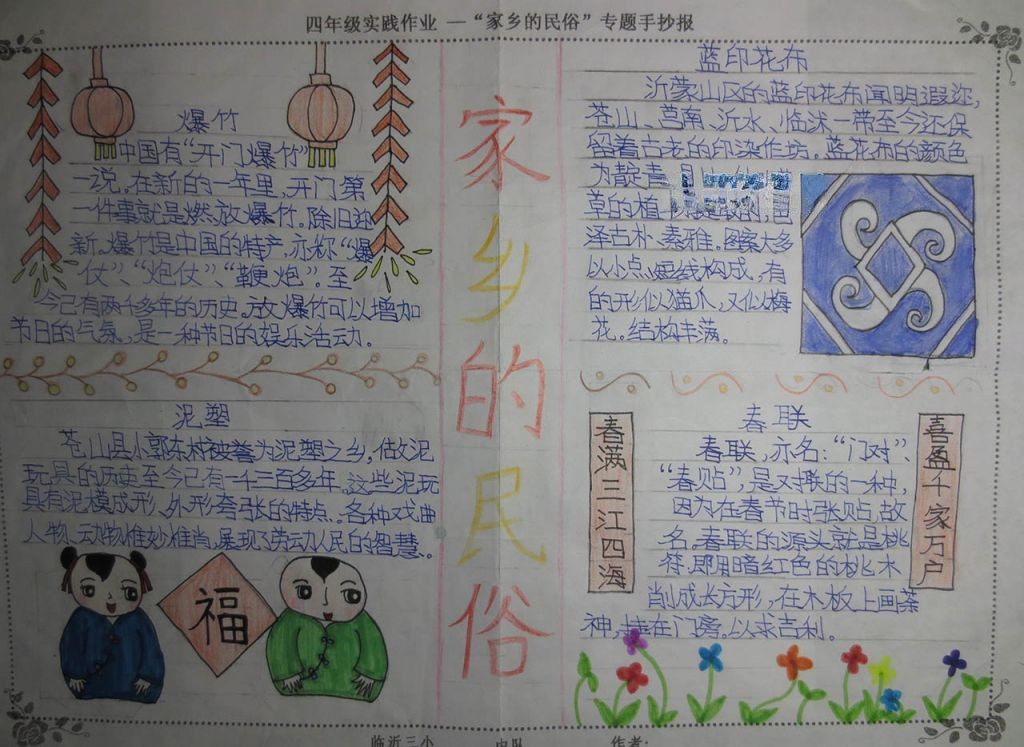 四年级实践作业 — “家乡的民俗” 专题手抄报
爆竹
中国有“开门爆竹”
一说，在新的一年里，开门第
一件事就是燃放爆竹。除旧迎
新。爆竹是中国的特产，亦称“爆
仗”、“炮仗”、“鞭炮”。至
今已有两千多年的历史。放爆竹可以增加
节日的气氛，是一种节日的娱乐活动。
泥塑
苍山县小郭东村被誉为泥塑之乡，估故泥
玩具的历史至今已有一千三百多年。这些泥玩
具有泥模成形、外形夸张的特点。各种戏曲
人物、动物惟妙惟肖，展现了劳动人民的智慧。
福
家乡的民俗
蓝印花布
沂蒙山区的蓝印花布闻明遐迩，
苍山、莒南、沂水、临沭一带至今还保
留着古老的印染作坊。蓝花布的颜色
为靛青
草的植 的，
泽古朴、素雅。图案大多
以小点、短线构成，有
的形似猫爪，又似梅
花。结构丰满。
春联
春联，亦名：“门对”、
“春贴”，是对联的一种，
因为在春节时张贴，故
名。春联的源头就是桃
符，即用暗红色的桃木
削成长方形，在木板上画荼
神，挂在门旁。以求吉利。
春满三江四海
喜盈千家万户
临沂三小 中队 作者：